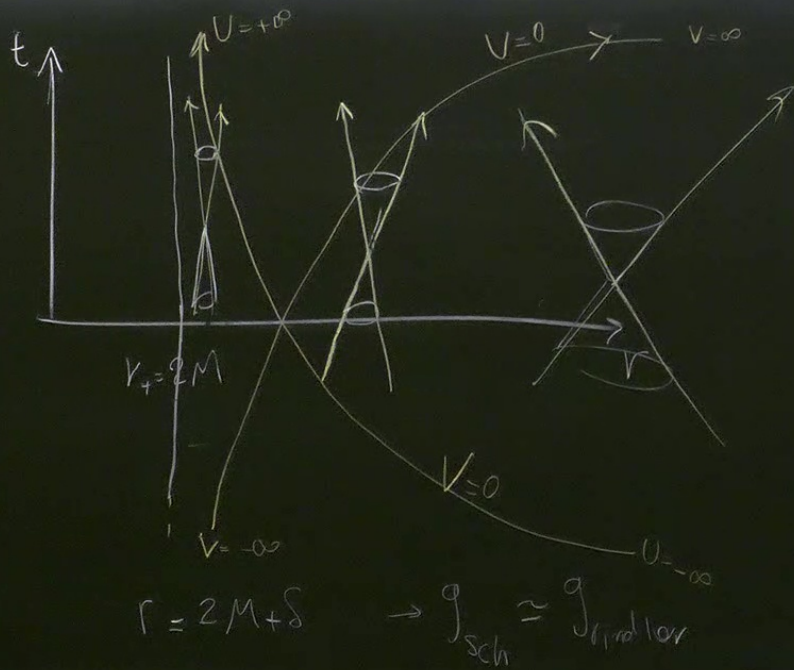 U=+∞
t
U=0
V=∞
r
r₊=2M
V=0
V=-∞
U=-∞
r=2M+δ → g_sch ≃ g_rindler